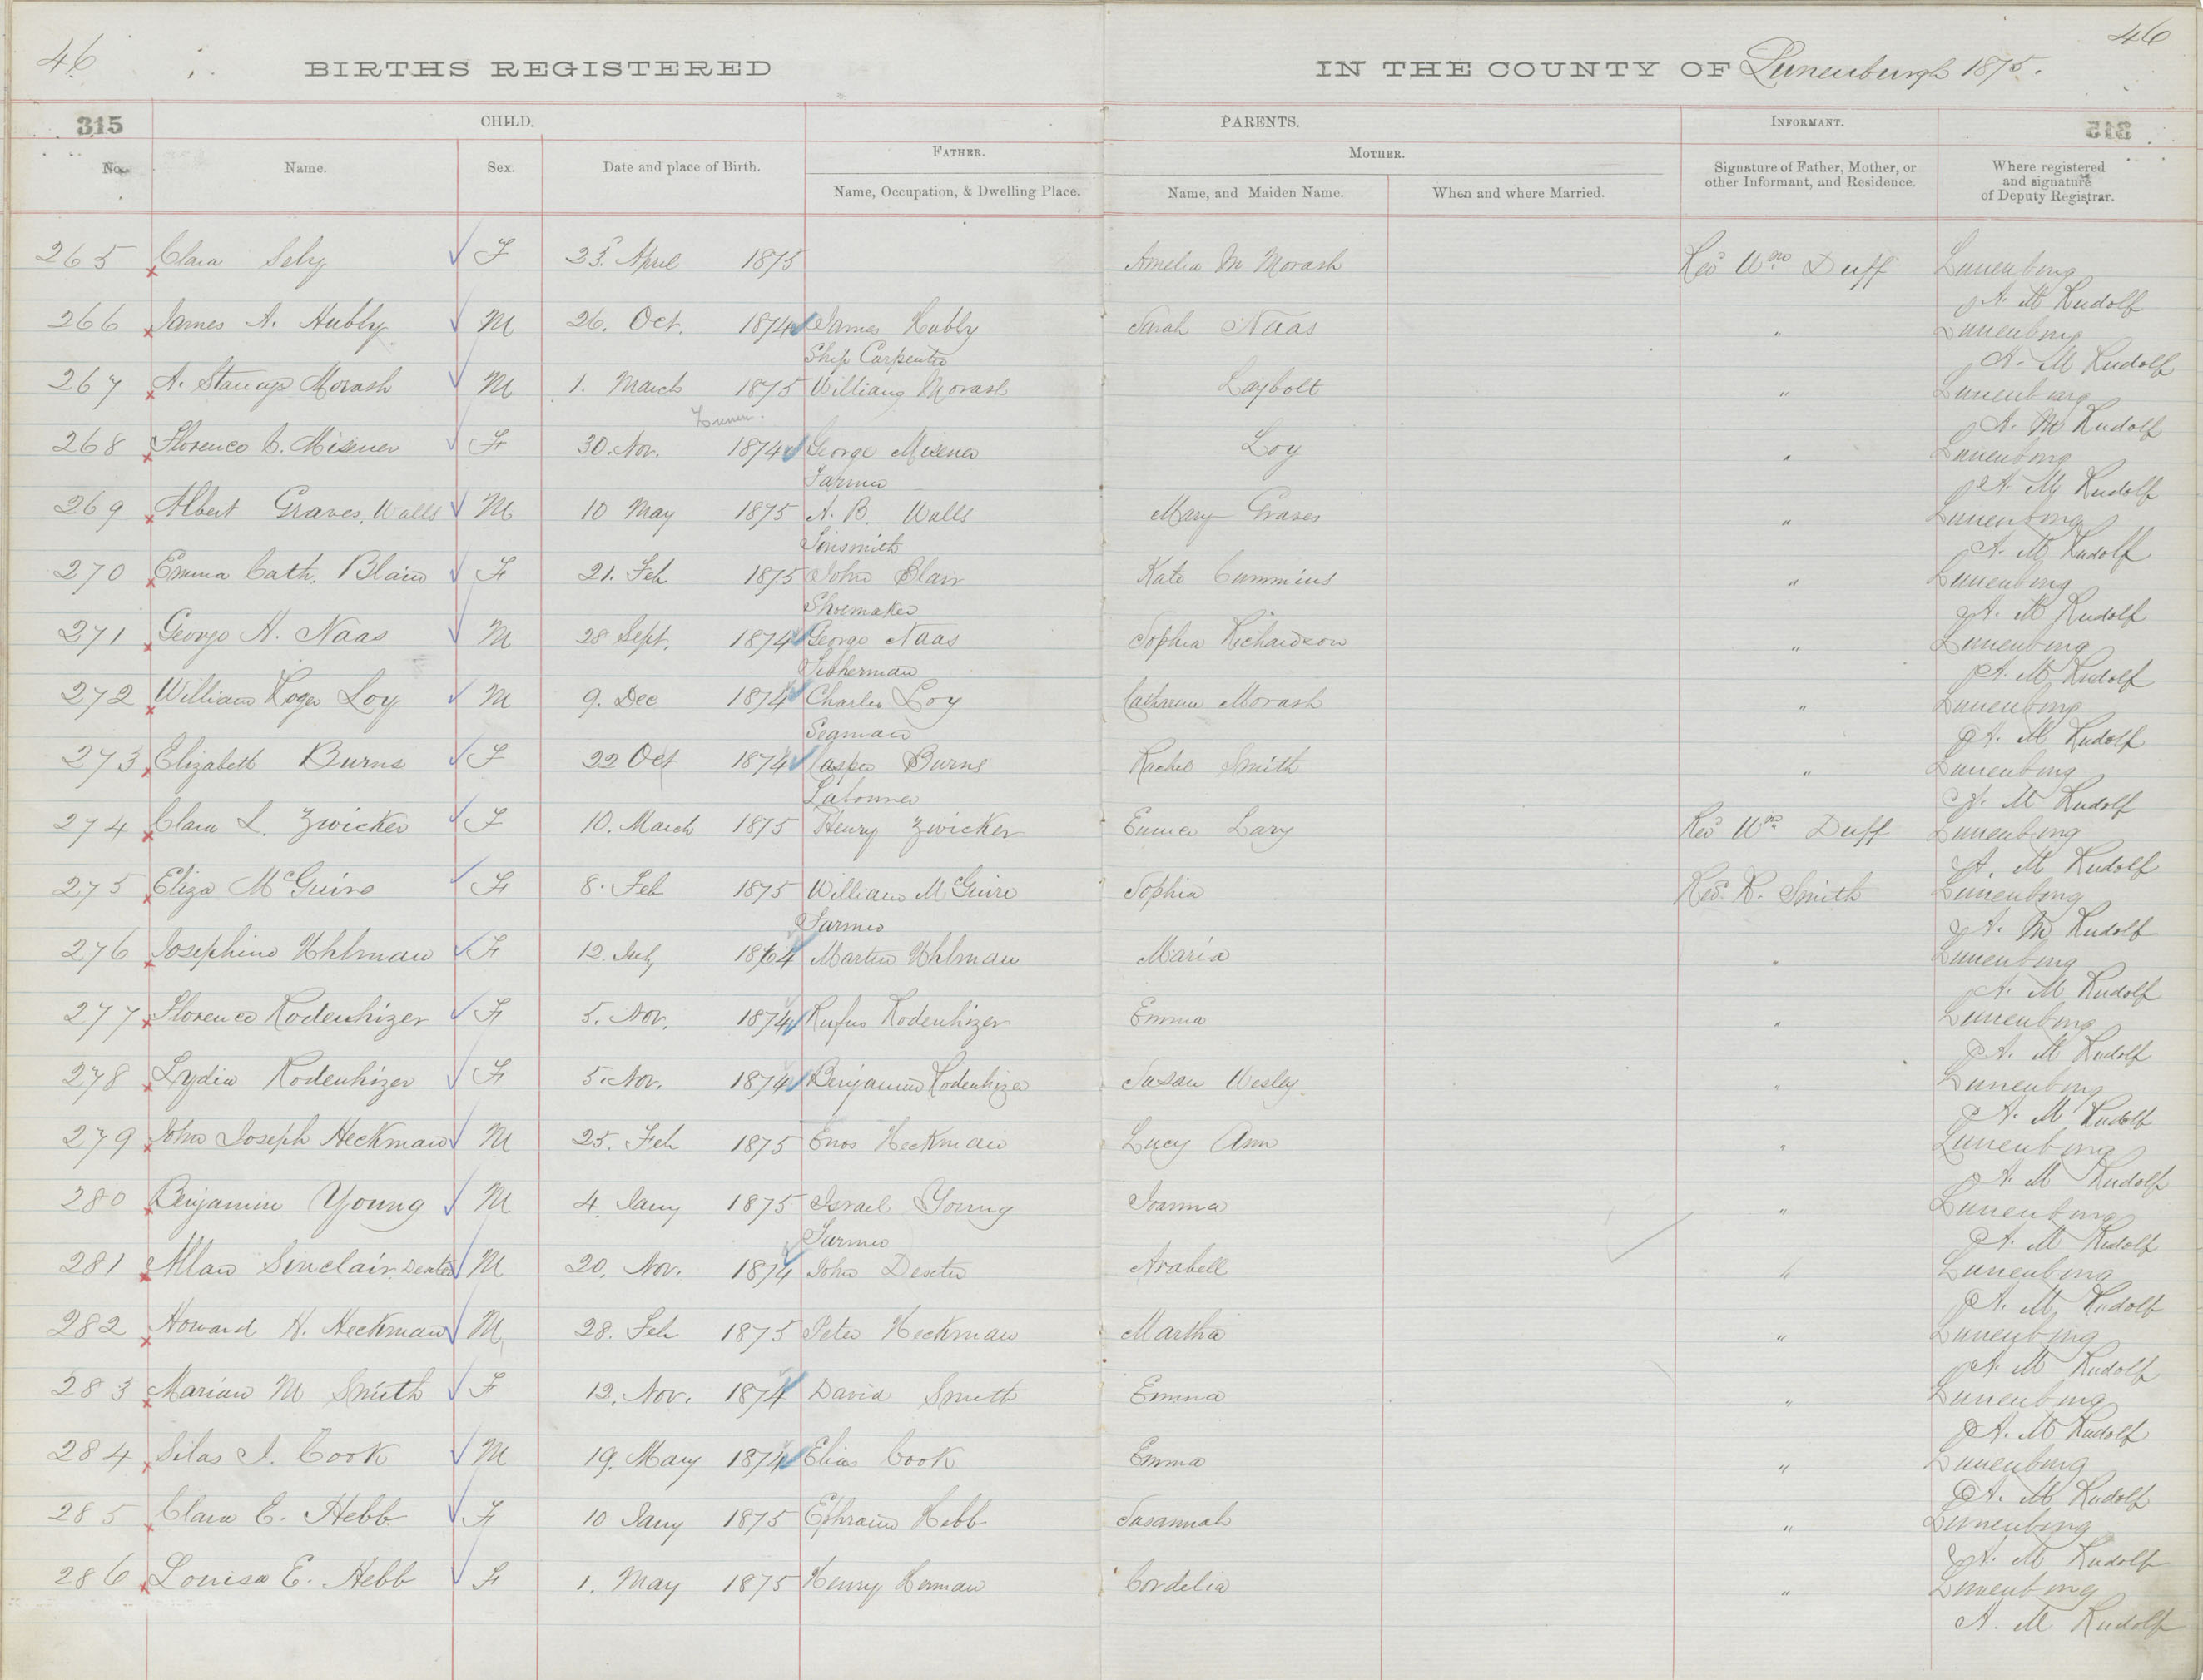 46 46
BIRTHS REGISTERED IN THE COUNTY OF Lunenburgh 1875.
315 CHILD. PARENTS. INFORMANT. 315
No. Name. Sex. Date and place of Birth. FATHER. MOTHER. Signature of Father, Mother, or other Informant, and Residence. Where registered and signature of Deputy Registrar.
Name, Occupation, & Dwelling Place. Name, and Maiden Name. When and where Married.
265 Clara Seby F 25 April 1875 Amelia M Morash Rev Wm Duff Lunenburg
A. M Rudolf
266 James A. Hubly M 26. Oct. 1874 James Hubly Sarah Naas " Lunenburg
Ship Carpenter A. M Rudolf
267 A. Morash M 1. March 1875 William Morash Laybolt " Lunenburg
A. M Rudolf
268 Florence C. Misener F 30. Nov. 1874 George Misener Loy " Lunenburg
Farmer A. M Rudolf
269 Albert Graves Walls M 10 May 1875 A. B. Walls Mary Graves " Lunenburg
Tinsmith A. M Rudolf
270 Emma Cath. Blair F 21. Feb 1875 John Blair Kate Cummins " Lunenburg
Shoemaker A. M Rudolf
271 George H. Naas M 28 Sept. 1874 George Naas Sophia Richardson " Lunenburg
Fisherman A. M Rudolf
272 William Roger Loy M 9. Dec 1874 Charles Loy Cathrine Morash " Lunenburg
Seaman A. M Rudolf
273 Elizabeth Burns F 22 Oct 1874 Casper Burns Rachel Smith " Lunenburg
Labourer A. M Rudolf
274 Clara L. Zwicker F 10. March 1875 Henry Zwicker Emma Lary Rev Wm Duff Lunenburg
A. M Rudolf
275 Eliza McGuire F 8. Feb 1875 William McGuire Sophia Rev. R. Smith Lunenburg
Farmer A. M Rudolf
276 Josephine Uhlman F 12. July 1864 Martin Uhlman Maria " Lunenburg
A. M Rudolf
277 Florence Rodenhizer F 5. Nov. 1874 Rufus Rodenhizer Emma " Lunenburg
A. M Rudolf
278 Lydia Rodenhizer F 5. Nov. 1874 Benjamin Rodenhizer Susan Wesley " Lunenburg
A. M Rudolf
279 John Joseph Heckman M 25. Feb 1875 Enos Heckman Lucy Ann " Lunenburg
A. M Rudolf
280 Benjamin Young M 4. Jany 1875 Israel Young Joanna " Lunenburg
Farmer A. M Rudolf
281 Allan Sinclair Dexter M 20. Nov. 1874 John Dexter Arabell " Lunenburg
A. M. Rudolf
282 Howard H. Heckman M 28. Feb 1875 Peter Heckman Martha " Lunenburg
A. M Rudolf
283 Marian M Smith F 12. Nov. 1874 David Smith Emma " Lunenburg
A. M Rudolf
284 Silas I. Cook M 19. May 1874 Elias Cook Emma " Lunenburg
A. M Rudolf
285 Clara E. Hebb F 10 Jany 1875 Ephraim Hebb Susannah " Lunenburg
A. M Rudolf
286 Louisa E. Hebb F 1. May 1875 Henry Herman Cordelia " Lunenburg
A. M Rudolf